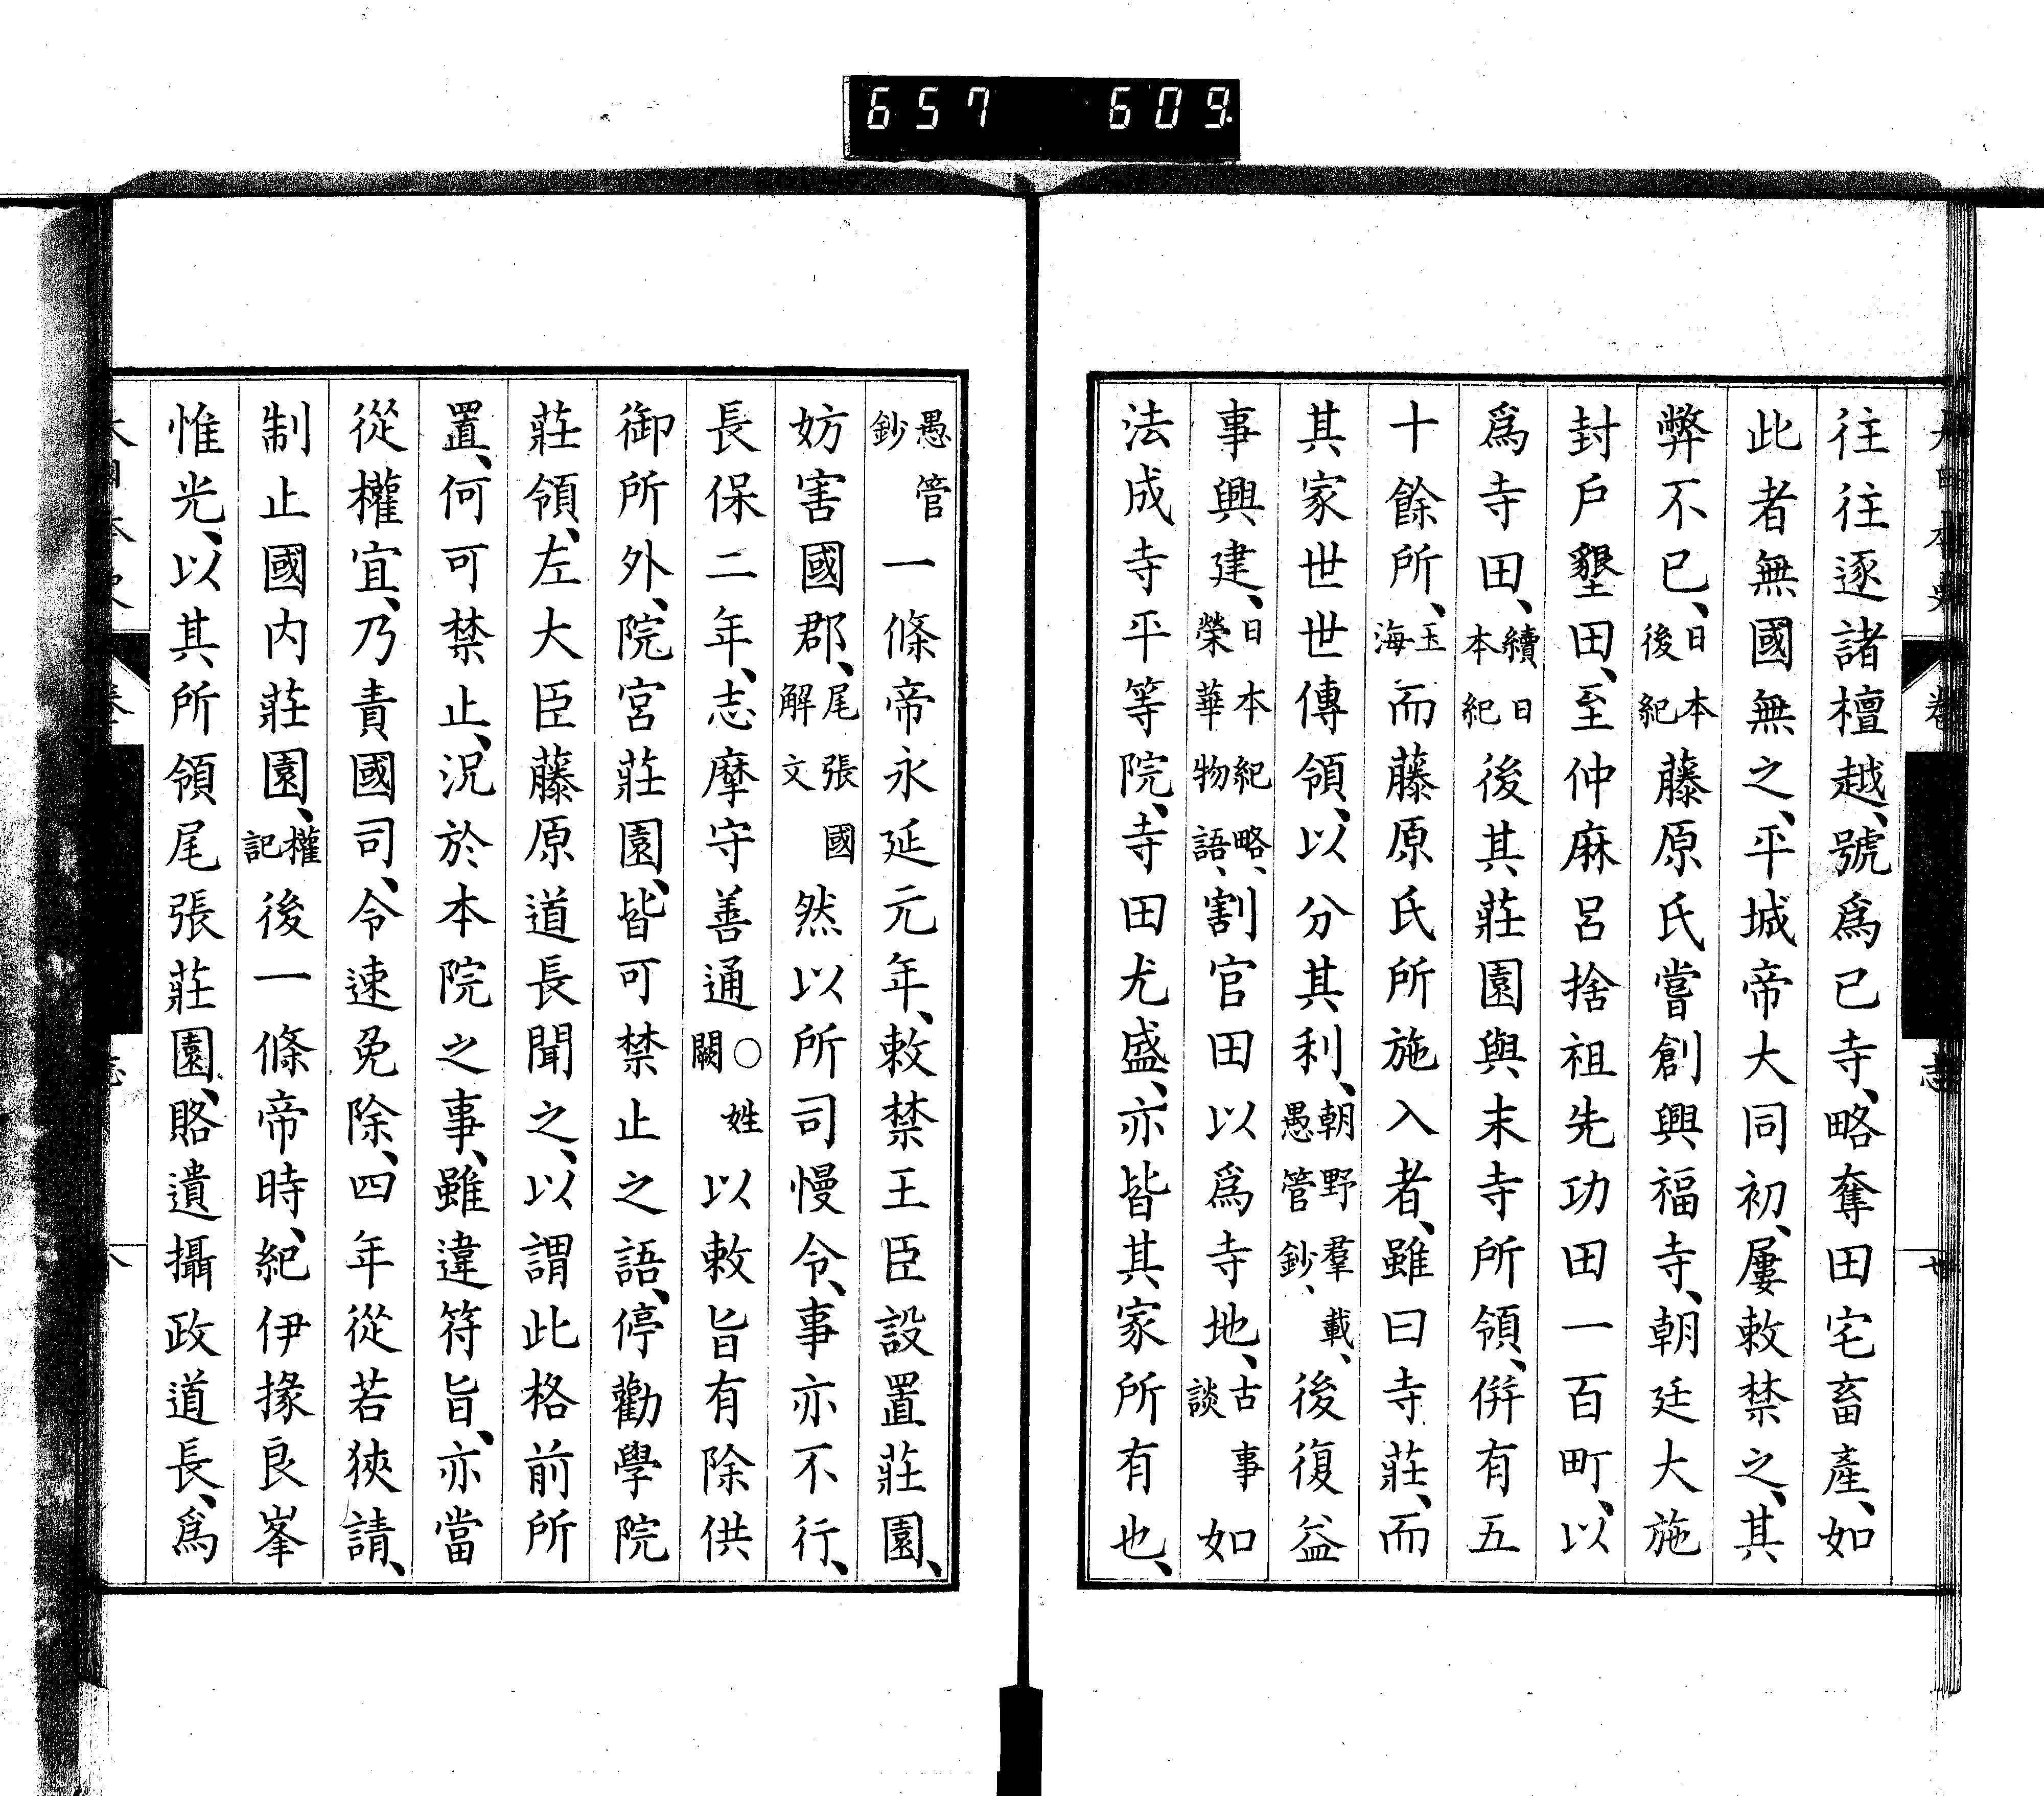 657 609.
往往逐諸檀越、號爲己寺、略奪田宅畜產、如
此者無國無之、平城帝大同初、屢敕禁之、其
弊不已、日本後紀藤原氏嘗創興福寺、朝廷大施
封戶墾田、至仲麻呂捨祖先功田一百町、以
爲寺田、續日本紀後其莊園與末寺所領、併有五
十餘所、玉海而藤原氏所施入者、雖曰寺莊、而
其家世世傳領、以分其利、朝野羣載、愚管鈔、後復益
事興建、日本紀略、榮華物語、割官田以爲寺地、古事談如
法成寺平等院、寺田尤盛、亦皆其家所有也、
愚管鈔一條帝永延元年、敕禁王臣設置莊園、
妨害國郡、尾張國解文然以所司慢令、事亦不行、
長保二年、志摩守善通○姓闕以敕旨有除供
御所外、院宮莊園、皆可禁止之語、停勸學院
莊領、左大臣藤原道長聞之、以謂此格前所
置、何可禁止、況於本院之事、雖違符旨、亦當
從權宜、乃責國司、令速免除、四年從若狹請、
制止國内莊園、權記後一條帝時、紀伊掾良峯
惟光、以其所領尾張莊園、賂遺攝政道長、爲